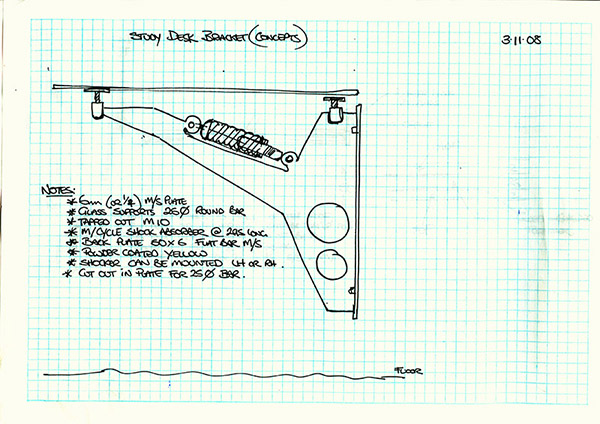 STUDY DESK BRACKET (CONCEPTS)
3·11·08
NOTES:
* 6mm (OR 1/4) M/S PLATE
* GLASS SUPPORTS 25Ø ROUND BAR
* TAPPED OUT M10
* M/CYCLE SHOCK ABSORBER @ 295 LONG
* BACK PLATE 50 x 6 FLAT BAR M/S
* POWDER COATED YELLOW
* SHOCKER CAN BE MOUNTED LH OR RH.
* CUT OUT IN PLATE FOR 25Ø BAR.
FLOOR